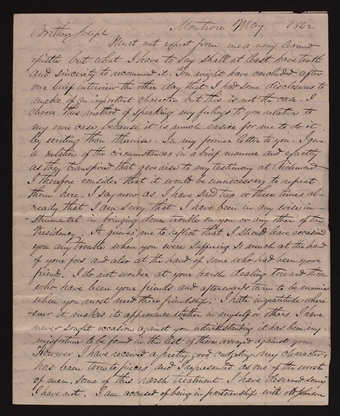 Montrose May 1862
Brother Joseph
Must not expect from me a very learned
epistle but what I have to say shall at least have truth
and sincerity to recommend it. You might have concluded after
our brief interview the other day that I had some disclosures to
make of an important character but this is not the case. I
chose this method of speaking my feelings to you relative to
my own case, because it is much easier for me to do it
by writing than otherwise. In my former letter to you I gave
a relation of the circumstances in a brief manner and exactly
as they transpired that gave rise to my testimony at Richmond
I therefore consider that it would be unnecessary to repeat
them here, I say now as I have said two or three times al-
ready that I am sorry that I have been in any wise in-
strumental in bringing down trouble on you or any other of the
Presidency. It grieves me to reflect that I should have occasioned
you any trouble when you were suffering so much at the hand
of your foes and also at the hand of some who had been your
friends. I do not wonder at your harsh dealing toward them
who have been your friends and afterwards turn to be enemies
when you most need their friendship; I hate ingratitude where
ever it makes its appearance whether in myself or others I have
never sought occasion against you notwithstanding it has been my
misfortune to be found in the list of those arrayed against you
However I have received a pretty good cudgeling my character
has been torn to pieces and I represented as one of the worst
of men, some of this harsh treatment I have deserved some
I have not. I am accused of being in partnership with